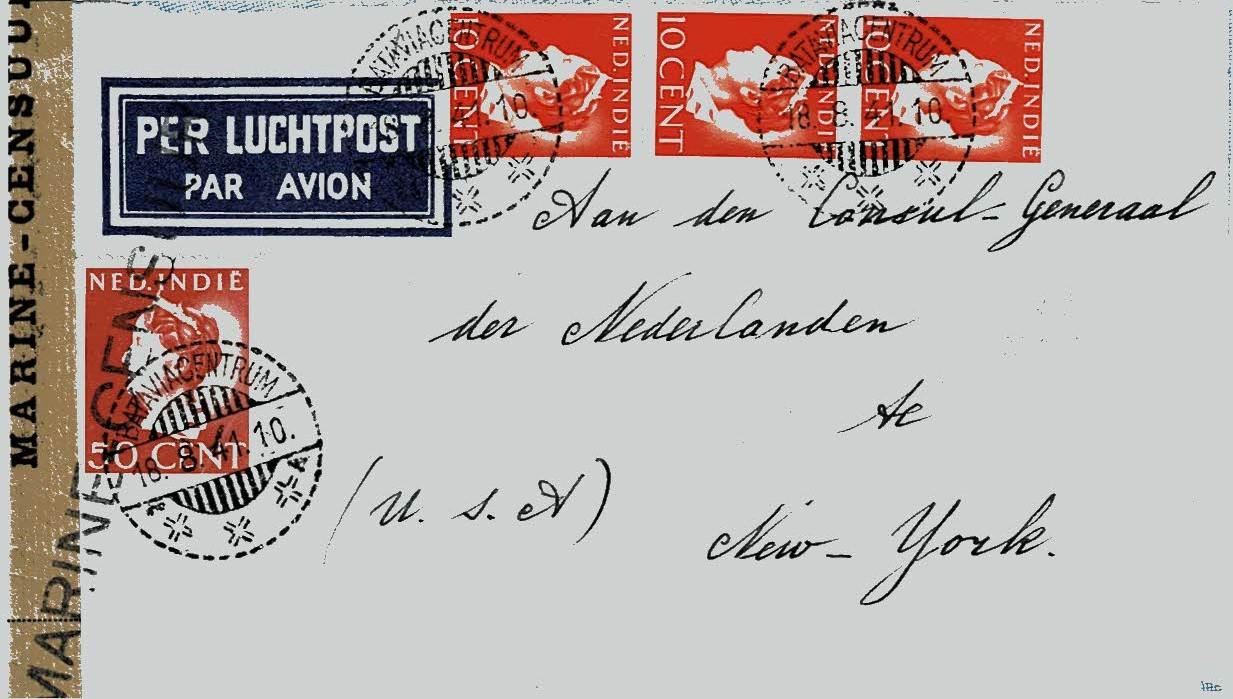 MARINE-CENSUUR
MARINE CENSUUR
PER LUCHTPOST
PAR AVION
NED. INDIË
10 CENT
NED. INDIË
10 CENT
NED. INDIË
10 CENT
BATAVIACENTRUM
18.8.41.10.
BATAVIACENTRUM
18.8.41.10.
Aan den Consul-Generaal
der Nederlanden
te
New-York.
(U.S.A)
NED. INDIË
50 CENT
BATAVIACENTRUM
18.8.41.10.